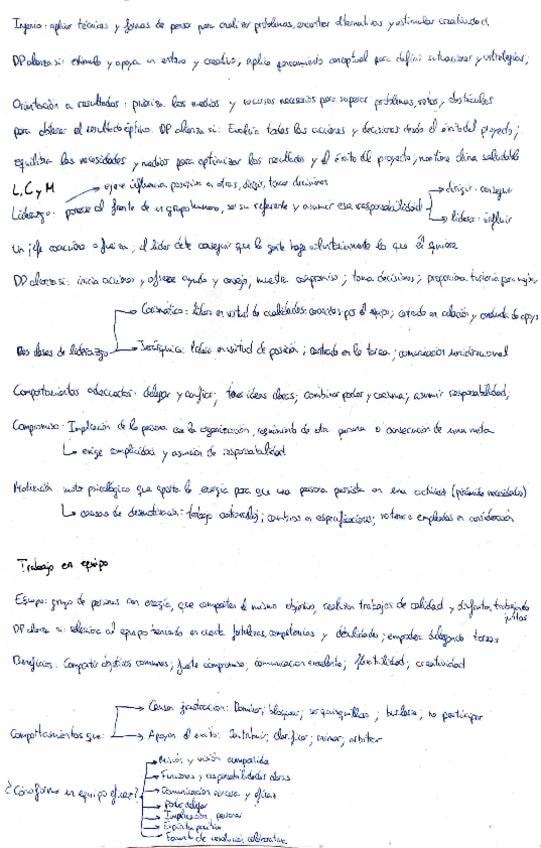 Ingenio: aplicar técnicas y formas de pensar para analizar problemas, encontrar alternativas y estimular creatividad.
DP alcanza si: estimula y apoya un entorno y creativo, aplica pensamiento conceptual para definir situaciones y estrategias;
Orientación a resultados: prioriza los medios y recursos necesarios para superar problemas, retos y obstáculos
para obtener el resultado óptimo. DP alcanza si: Evalúa todas las acciones y decisiones desde el éxito del proyecto;
equilibra las necesidades y medios para optimizar los resultados y el éxito del proyecto, mantiene clima saludable
L, C y M → ejerce influencia positiva en otros, dirigir, tomar decisiones
Liderazgo: ponerse al frente de un grupo humano, ser su referente y asumir esa responsabilidad → dirigir - conseguir
→ liderar - influir
Un jefe coacciona o fuerza; el líder debe conseguir que la gente haga voluntariamente lo que él quiera
DP alcanza si: inicia acciones y ofrece ayuda y consejo, muestra compromiso; toma decisiones; proporciona tutoría para mejorar
→ Carismático: líder en virtud de cualidades por el equipo; centrado en relación y conducta de apoyo
Dos clases de liderazgo → Jerárquico: líder en virtud de posición; centrado en la tarea; comunicación unidireccional
Comportamientos adecuados: delegar y confiar; tener ideas claras; combinar poder y carisma; asumir responsabilidad;
Compromiso: Implicación de la persona con la organización, seguimiento de otra persona o consecución de una meta
↳ exige complicidad y asunción de responsabilidad
Motivación: motor psicológico que aporta la energía para que una persona persista en una actividad (pirámide necesidades)
↳ causas de desmotivación: trabajo; cambios en especificaciones; no tener a empleados en consideración
Trabajo en equipo
Equipo: grupo de personas con energía, que comparten el mismo objetivo, realizan trabajos de calidad y disfrutan trabajando juntas
DP alcanza si: selecciona al equipo teniendo en cuenta fortalezas, competencias y debilidades; empodera delegando tareas
Beneficios: Compartir objetivos comunes; fuerte compromiso; comunicación excelente; flexibilidad; creatividad
→ Causan frustración: Dominar; bloquear; burlarse; no participar
Comportamientos que: → Apoyan el éxito: Contribuir; clarificar; animar; arbitrar
→ Misión y visión compartida
→ Funciones y responsabilidades claras
¿Cómo formar un equipo eficaz? → Comunicación sincera y eficaz
→ Poder delegar
→ Implicación personal
→ Espíritu positivo
→ Fomento de resolución colaborativa